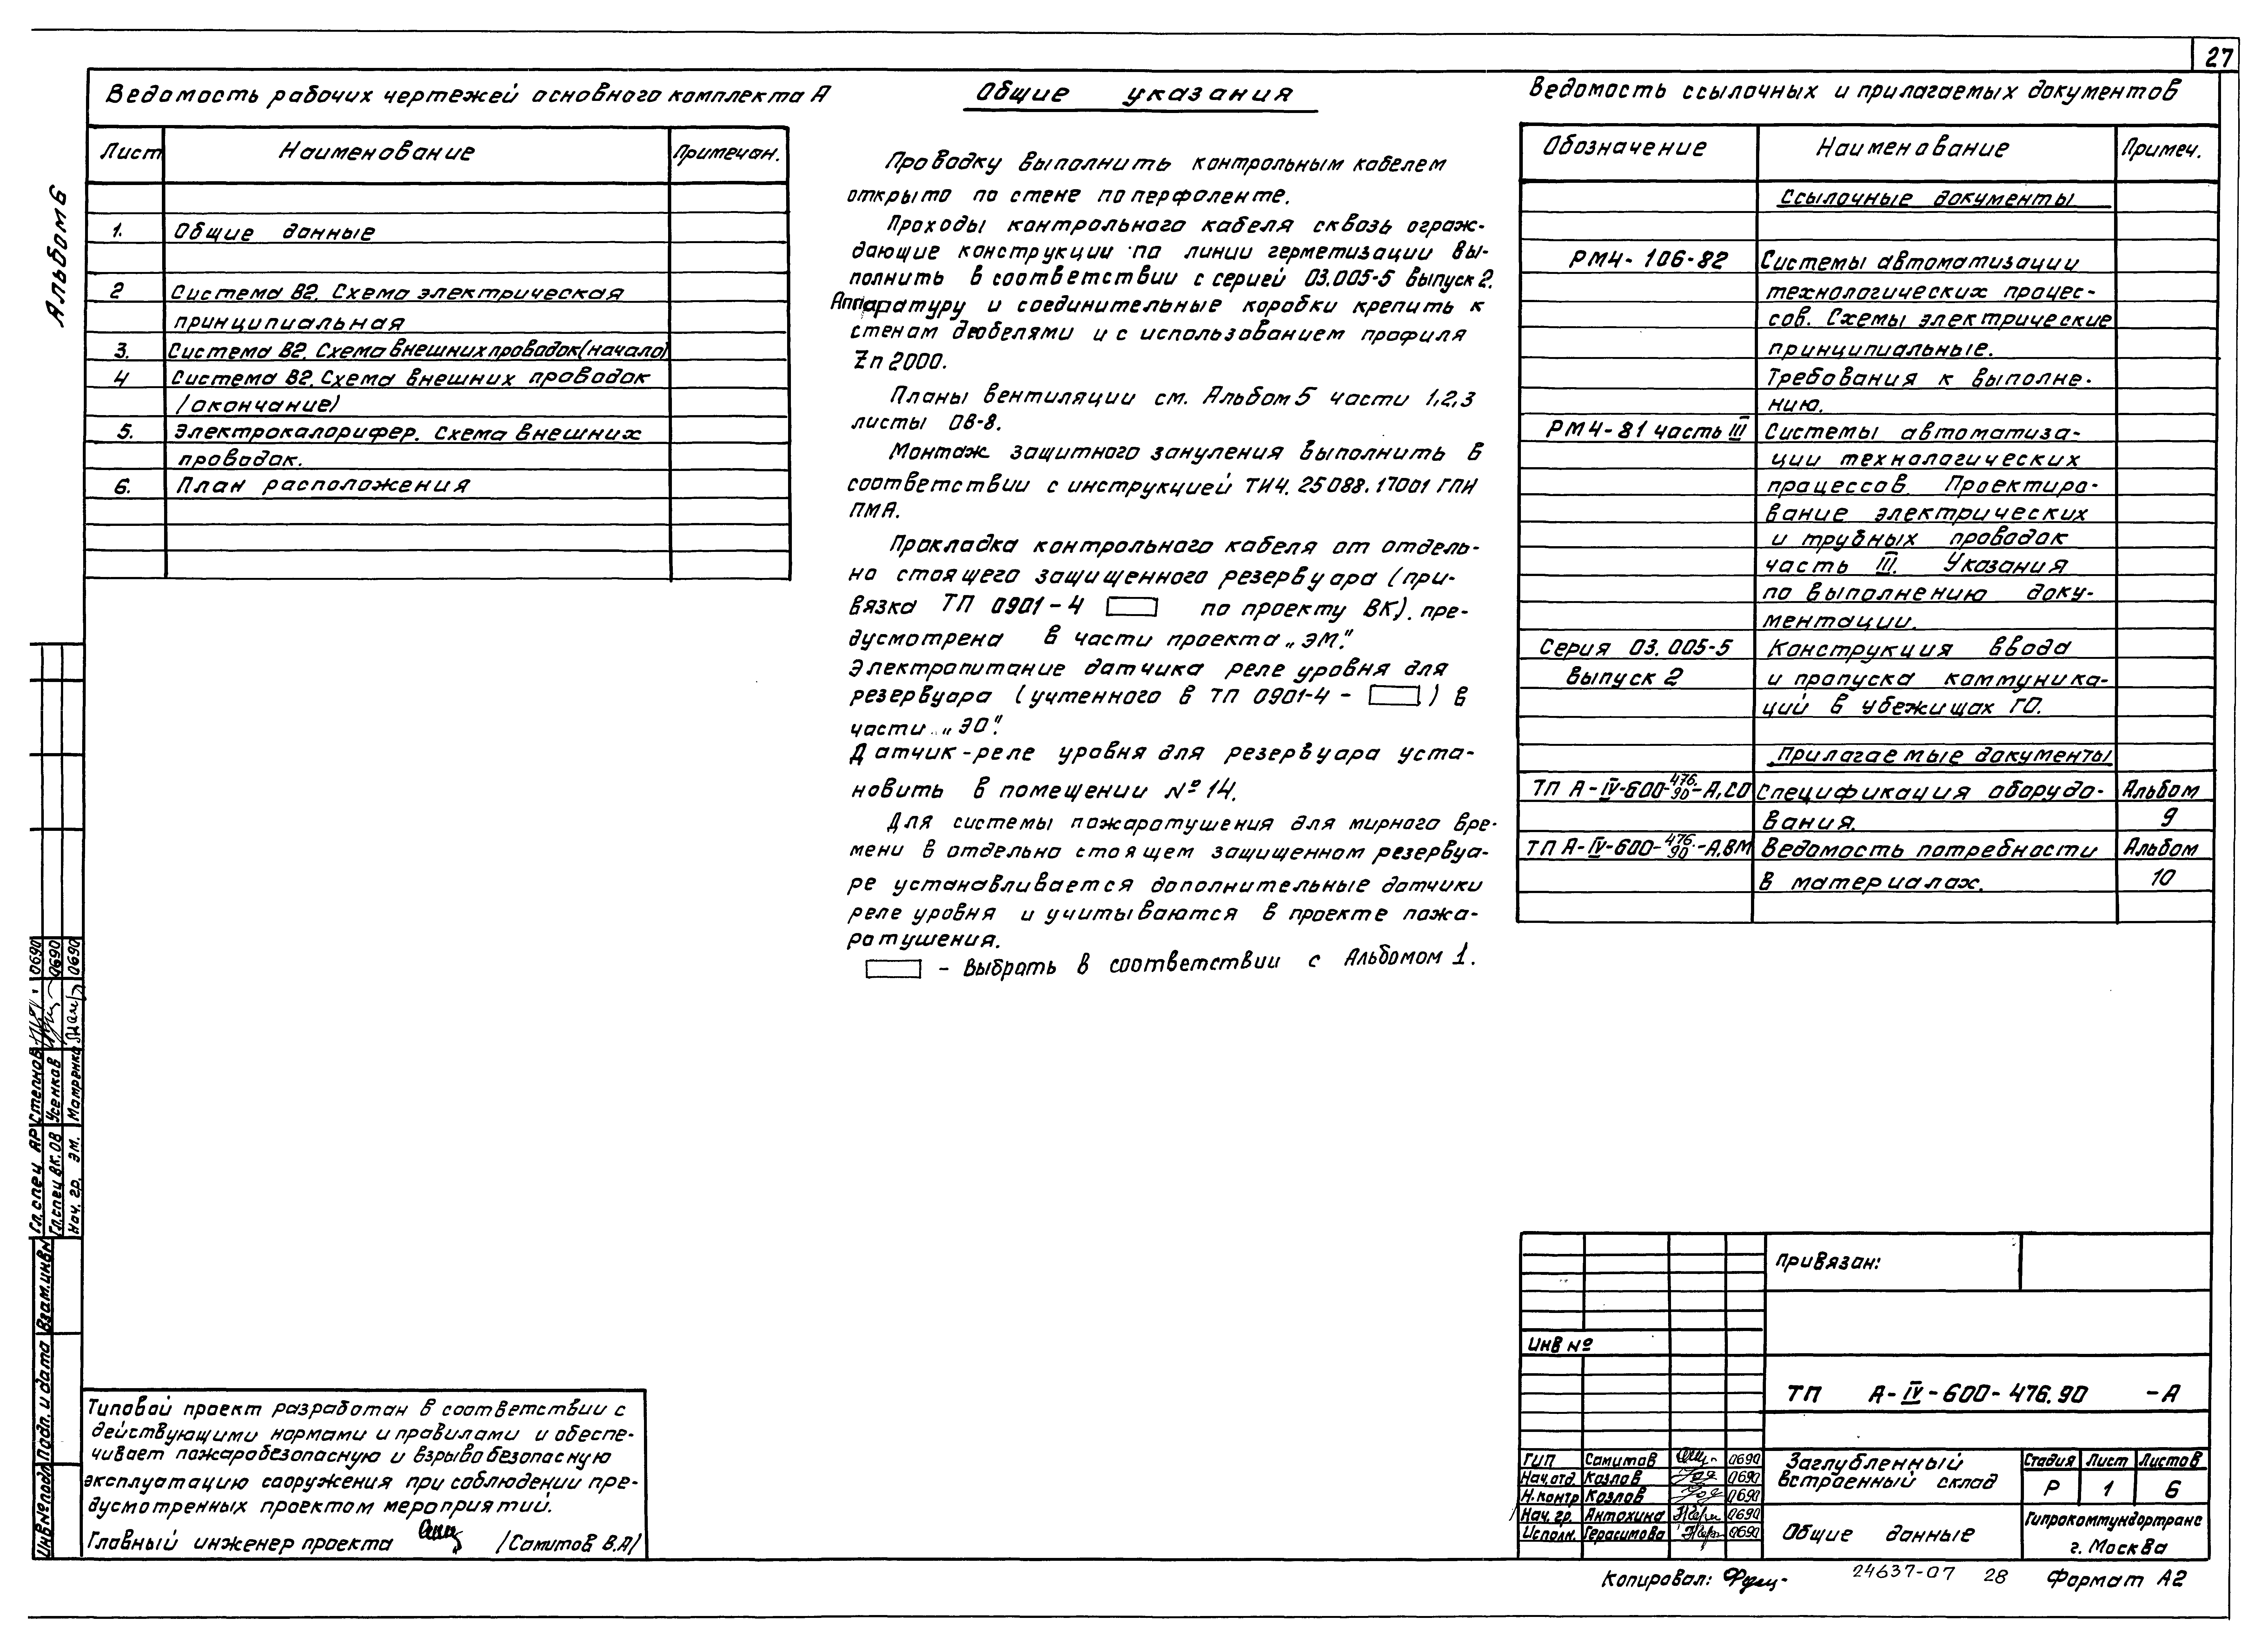 27
Альбом 6
Ведомость рабочих чертежей основного комплекта А
Лист Наименование Примечан.
1. Общие данные
2 Система В2. Схема электрическая
принципиальная
3. Система В2. Схема внешних проводок (начало)
4 Система В2. Схема внешних проводок
(окончание)
5. Электрокалорифер. Схема внешних
проводок.
6. План расположения
Общие указания
Проводку выполнить контрольным кабелем
открыто по стене по перфоленте.
Проходы контрольного кабеля сквозь ограж-
дающие конструкции по линии герметизации вы-
полнить в соответствии с серией 03.005-5 выпуск 2.
Аппаратуру и соединительные коробки крепить к
стенам дюбелями и с использованием профиля
Zп 2000.
Планы вентиляции см. Альбом 5 части 1,2,3
листы ОВ-8.
Монтаж защитного зануления выполнить в
соответствии с инструкцией ТИ4. 25088. 17001 ГПИ
ПМА.
Прокладка контрольного кабеля от отдель-
но стоящего защищенного резервуара (при-
вязка ТП 0901-4 по проекту ВК). пре-
дусмотрена в части проекта „ЭМ".
Электропитание датчика реле уровня для
резервуара (учтенного в ТП 0901-4 - ) в
части „ЭО".
Датчик-реле уровня для резервуара уста-
новить в помещении № 14.
Для системы пожаротушения для мирного вре-
мени в отдельно стоящем защищенном резервуа-
ре устанавливается дополнительные датчики
реле уровня и учитываются в проекте пожа-
ротушения.
- Выбрать в соответствии с Альбомом 1.
Ведомость ссылочных и прилагаемых документов
Обозначение Наименование Примеч.
Ссылочные документы
РМ4-106-82 Системы автоматизации
технологических процес-
сов. Схемы электрические
принципиальные.
Требования к выполне-
нию.
РМ4-81 часть III Системы автоматиза-
ции технологических
процессов. Проектиро-
вание электрических
и трубных проводок
часть III. Указания
по выполнению доку-
ментации.
Серия 03.005-5 Конструкция ввода
Выпуск 2 и пропуска коммуника-
ций в убежищах ГО.
Прилагаемые документы
ТП А-IV-600-476.90-А.СО Спецификация оборудо- Альбом
вания. 9
ТП А-IV-600-476.90-А.ВМ Ведомость потребности Альбом
в материалах. 10
Гл. спец АР Степнов 0690
Гл. спец ВК.ОВ Усенков 0690
Нач. гр. эм. Матренко 0690
Взам.инв№
Подп. и дата
Инв№подл
Типовой проект разработан в соответствии с
действующими нормами и правилами и обеспе-
чивает пожаробезопасную и взрывобезопасную
эксплуатацию сооружения при соблюдении пре-
дусмотренных проектом мероприятий.
Главный инженер проекта /Самитов В.А/
Привязан:
Инв №
ТП А-IV-600-476.90 -А
ГИП Самитов 0690
Нач.отд. Козлов 0690
Н.контр Козлов 0690
Нач. гр. Антохина 0690
Исполн. Герасимова 0690
Заглубленный
встроенный склад
Стадия Лист Листов
Р 1 6
Общие данные
Гипрокоммундортранс
г. Москва
Копировал:
24637-07 28
Формат А2